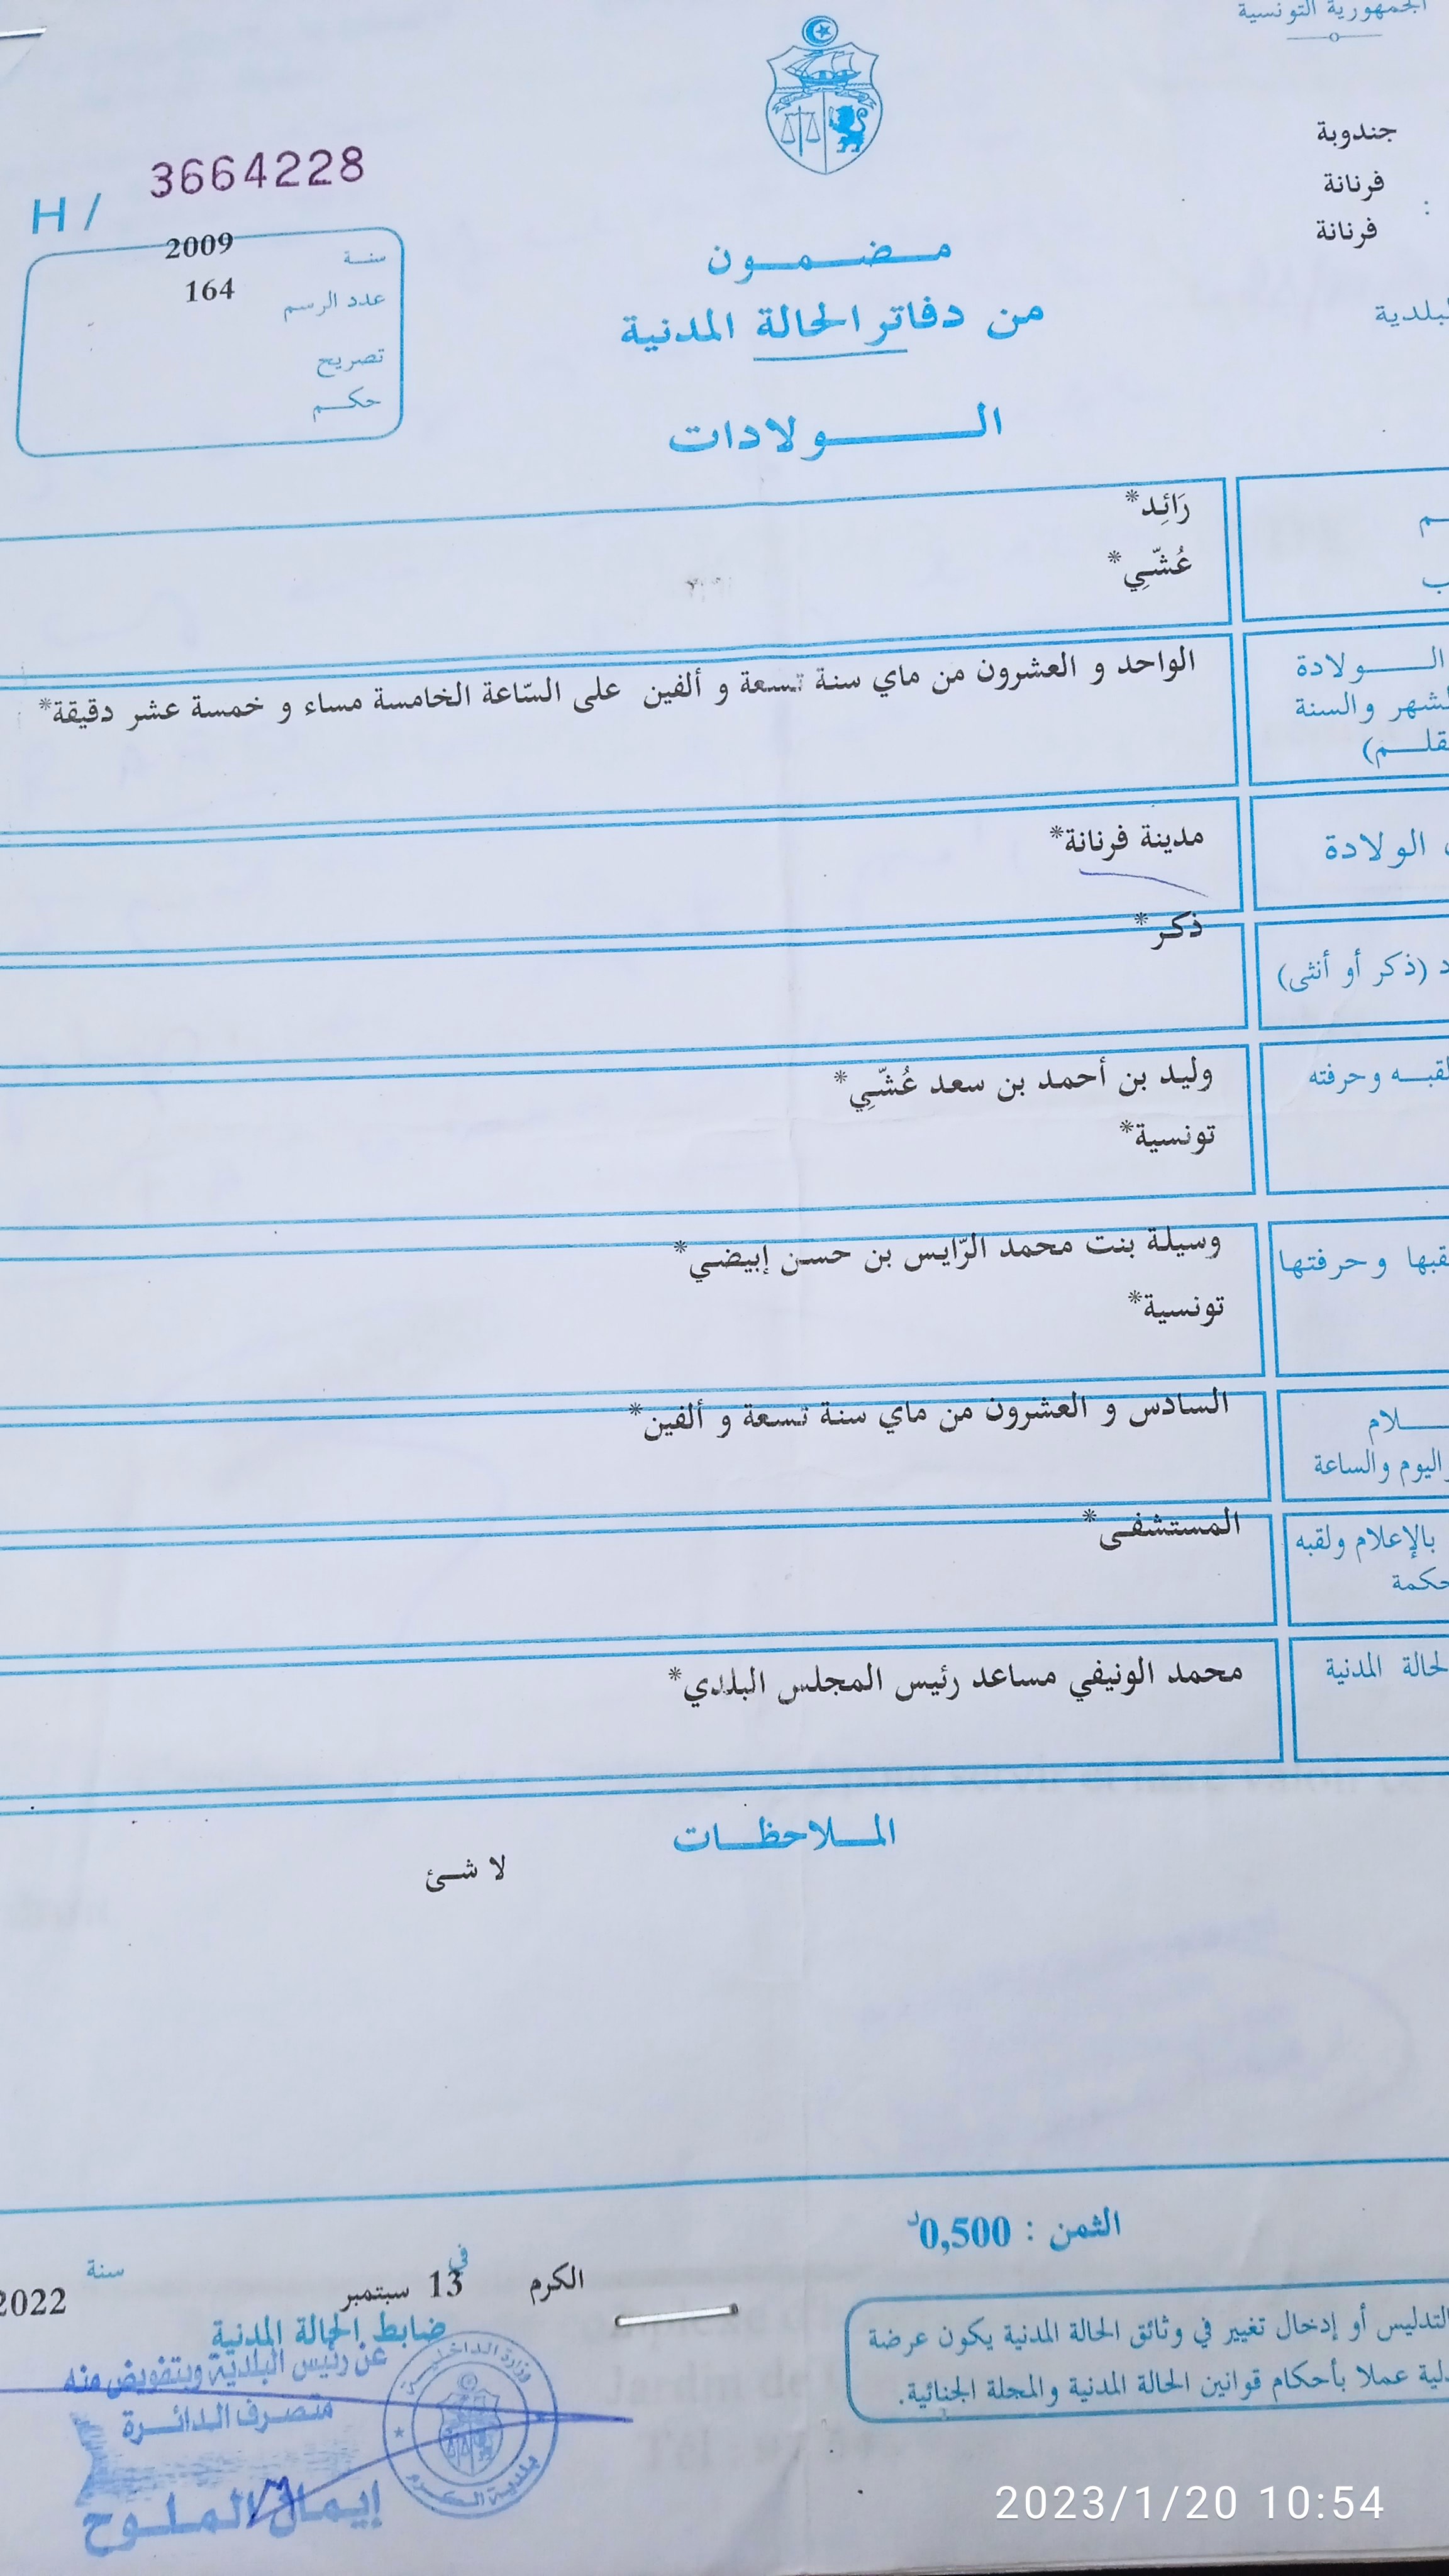 الجمهورية التونسية
جندوبة
فرنانة
فرنانة
:
H / 3664228
سنة 2009
عدد الرسم 164
تصريح
حكم
مضمون
من دفاتر الحالة المدنية
الولادات
رَائِد*
عُشّي*
الولادة
الواحد و العشرون من ماي سنة تسعة و ألفين على السّاعة الخامسة مساء و خمسة عشر دقيقة*
والسنة
الولادة
مدينة فرنانة*
ذكر*
(ذكر أو أنثى)
وحرفته
وليد بن أحمد بن سعد عُشّي*
تونسية*
وحرفتها
وسيلة بنت محمد الرّايس بن حسن إبيضي*
تونسية*
السادس و العشرون من ماي سنة تسعة و ألفين*
اليوم والساعة
المستشفى*
بالإعلام ولقبه
المدنية
محمد الونيفي مساعد رئيس المجلس البلدي*
الملاحظات
لا شئ
الثمن : 0,500د
الكرم في 13 سبتمبر سنة 2022
ضابط الحالة المدنية
عن رئيس البلدية وبتفويض منه
متصرف الدائرة
إيمان الملوح
وزارة الداخلية
بلدية الكرم
التدليس أو إدخال تغيير في وثائق الحالة المدنية يكون عرضة
عملا بأحكام قوانين الحالة المدنية والمجلة الجنائية.
2023/1/20 10:54